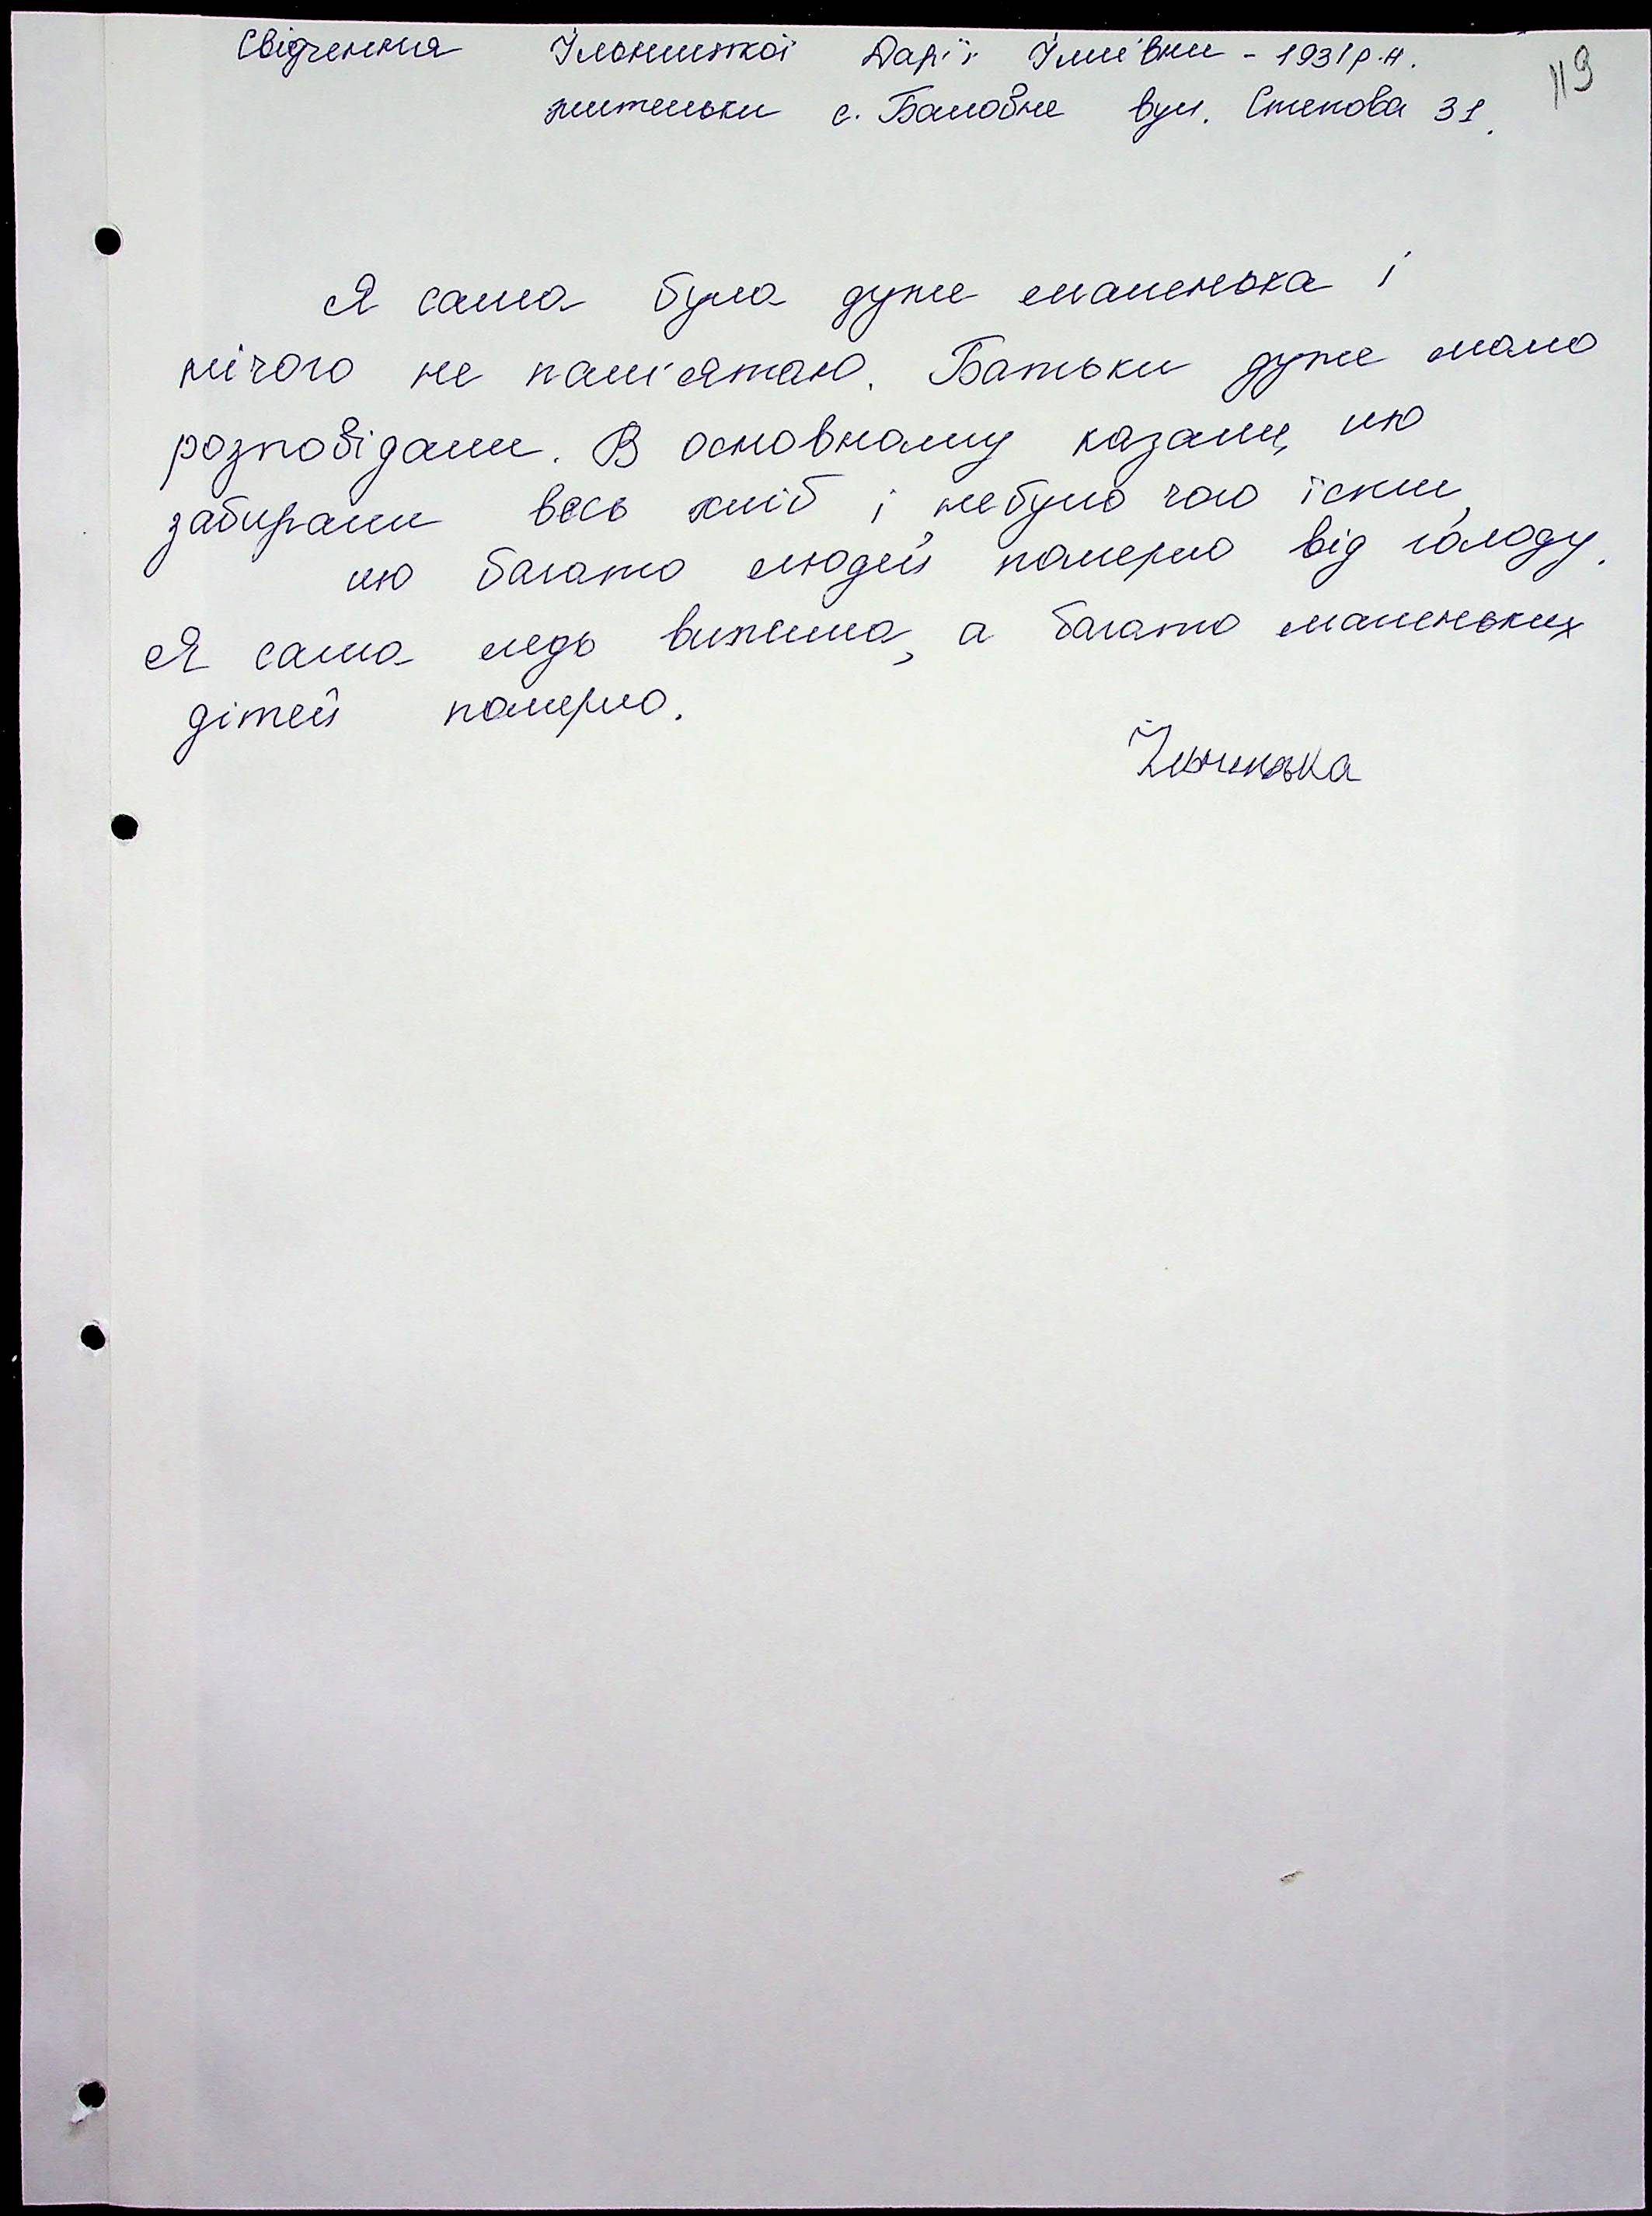 Свідчення Ільницької Дарії Іллівни - 1931 р.н.
119
жительки с. Баловне вул. Степова 31.
Я сама була дуже маленька і
нічого не пам'ятаю. Батьки дуже мало
розповідали. В основному казали, що
забирали весь хліб і небуло чого їсти,
що багато людей померло від голоду.
Я сама ледь вижила, а багато маленьких
дітей померло.